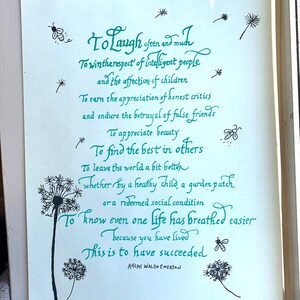 To Laugh often and much
To win the respect of intelligent people
and the affection of children
To earn the appreciation of honest critics
and endure the betrayal of false friends
To appreciate beauty
To find the best in others
To leave the world a bit better
whether by a healthy child, a garden patch,
or a redeemed social condition
To know even one Life has breathed easier
because you have lived
This is to have succeeded
RALPH WALDO EMERSON